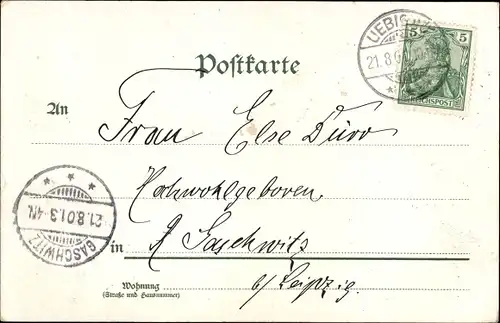 UEBIG
21.8.0
5 5
REICHSPOST
Postkarte
An
Frau Else Dürr
Hochwohlgeboren
in Gaschwitz
b/ Leipzig.
GASCHWITZ
21.8.01.3-4N.
Wohnung
(Straße und Hausnummer)